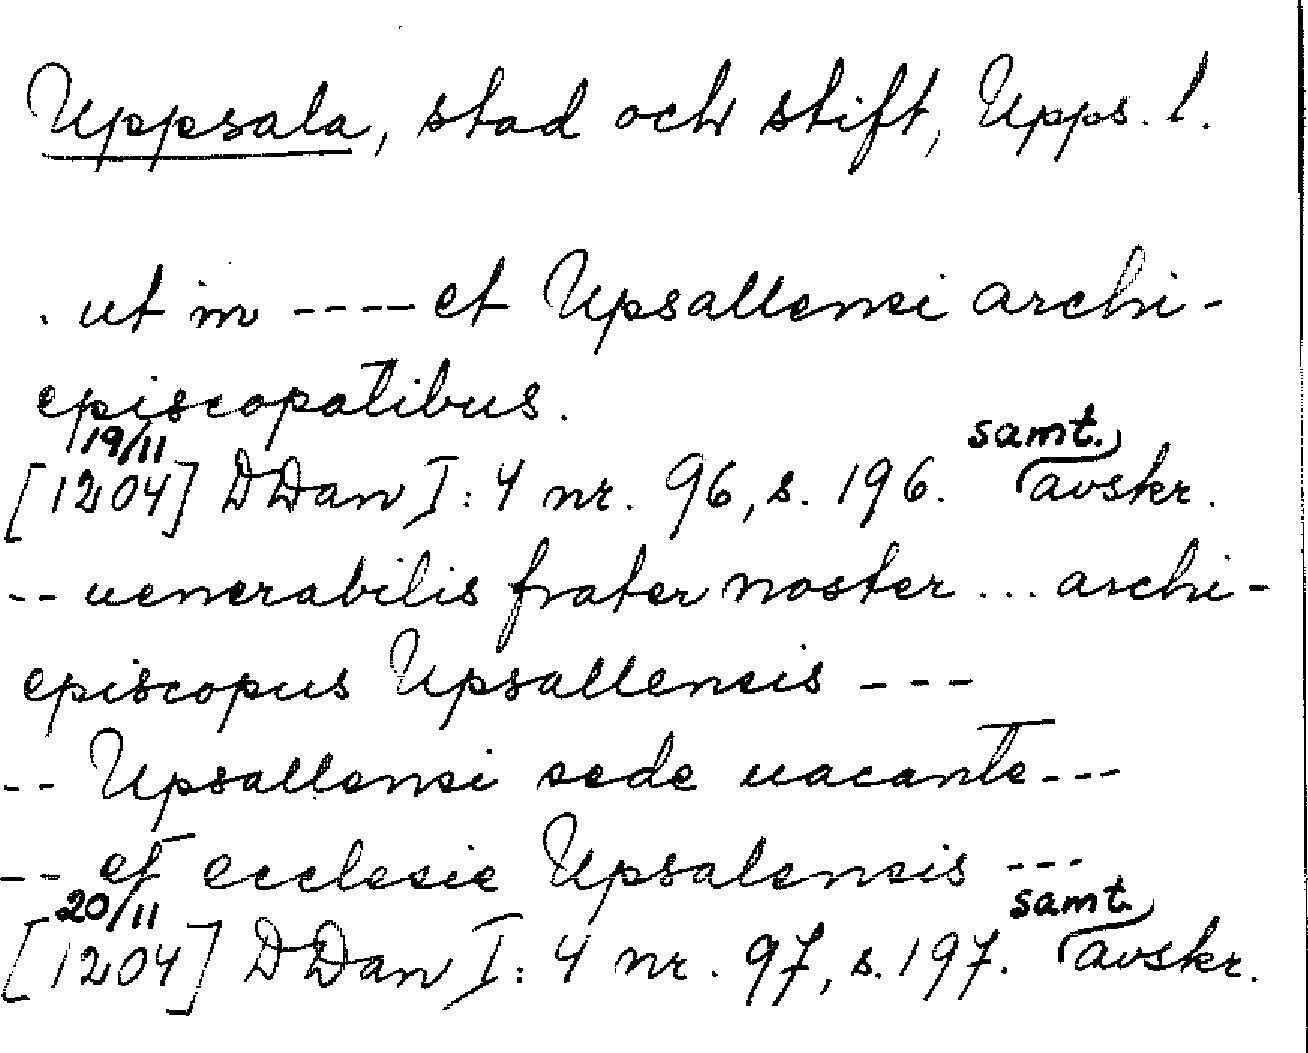 Uppsala, stad och stift, Upps. l.
. ut in ---- et Upsallensi archi-
episcopatibus.
19/11 samt.
[1204] DDan I: 4 nr. 96, s. 196. avskr.
-- uenerabilis frater noster ... archi-
episcopus Upsallensis ---
-- Upsallensi sede uacante---
-- et ecclesie Upsalensis ---
20/11 samt.
[1204] DDan I: 4 nr. 97, s. 197. avskr.